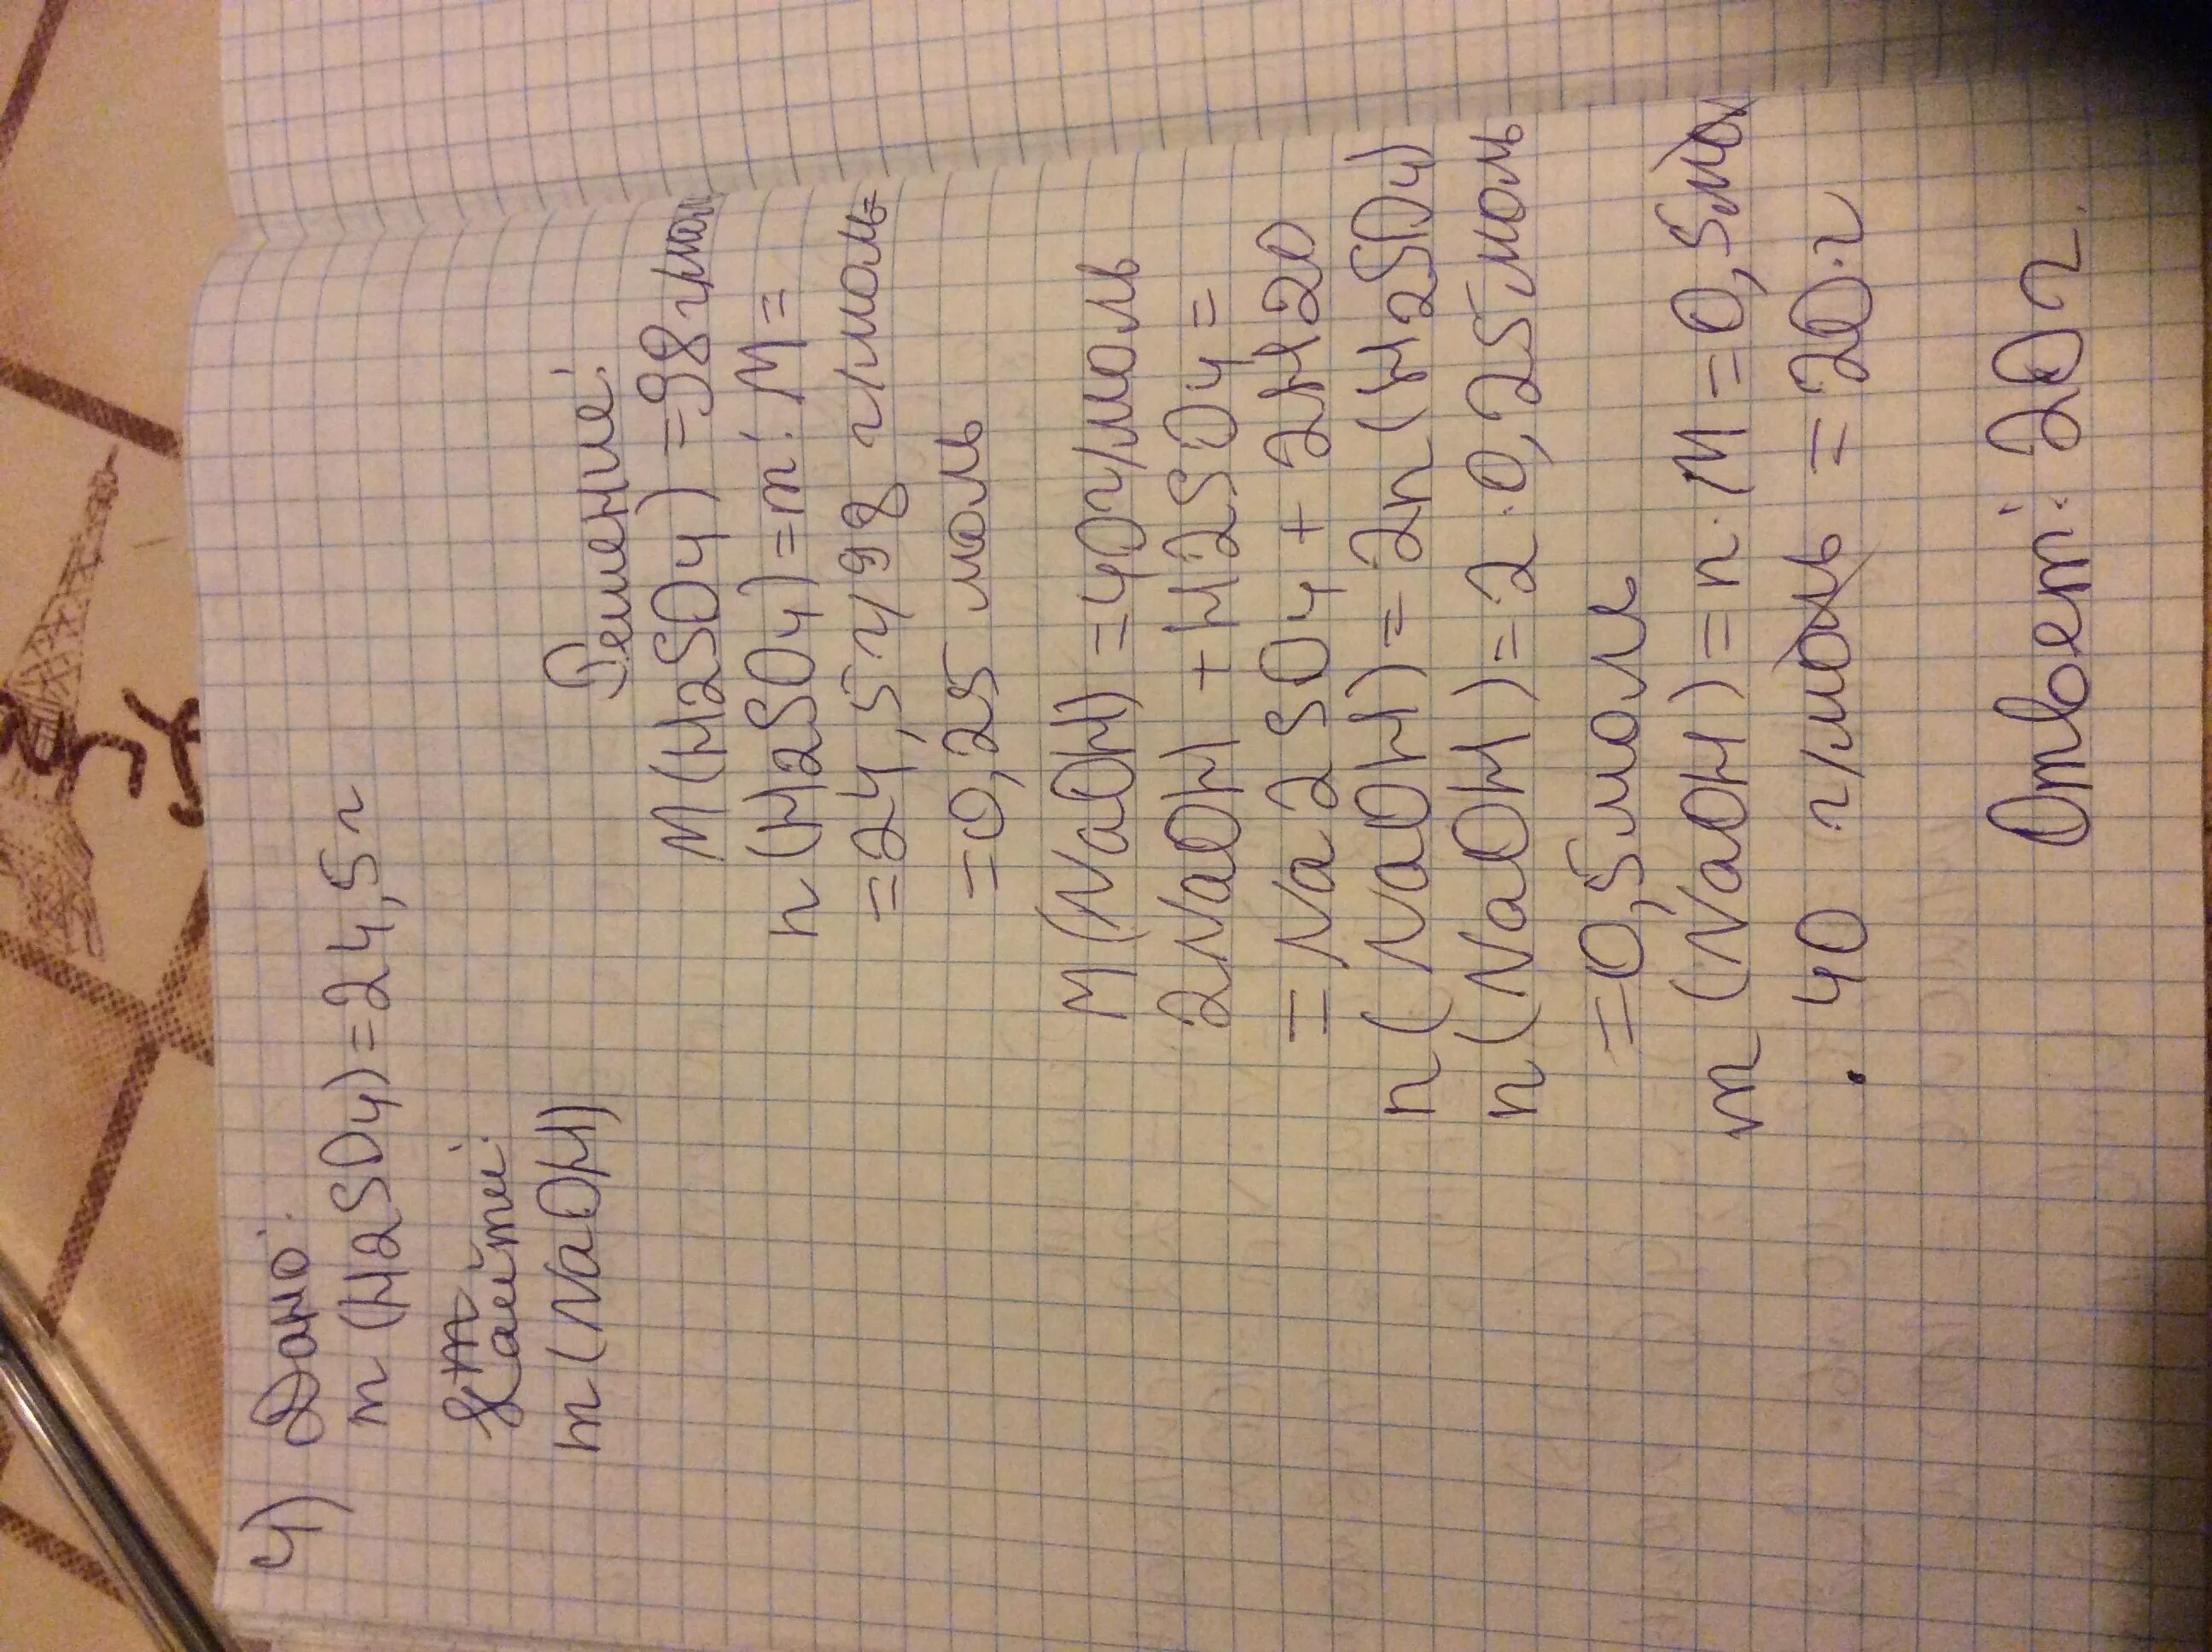 4) Дано:
m(H2SO4)=24,5г
Найти:
m(NaOH)
Решение:
M(H2SO4)=98г/мол
n(H2SO4)=m:M=
=24,5г/98 г/моль=
=0,25 моль
M(NaOH)=40г/моль
2NaOH+H2SO4=
=Na2SO4+2H2O
n(NaOH)=2n(H2SO4)
n(NaOH)=2·0,25моль
=0,5моль
m(NaOH)=n·M=0,5мол
·40 г/моль=20·г
Ответ: 20г.